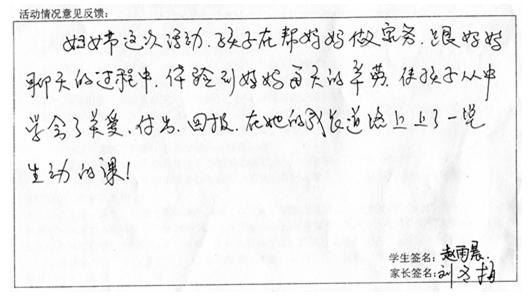 活动情况意见反馈:
妇女节这次活动,孩子在帮妈妈做家务,跟妈妈
聊天的过程中,体验到妈妈每天的辛劳,使孩子从中
学会了关爱、付出、回报,在她的成长道路上上了一堂
生动的课!
学生签名:赵雨晨.
家长签名:刘冬梅